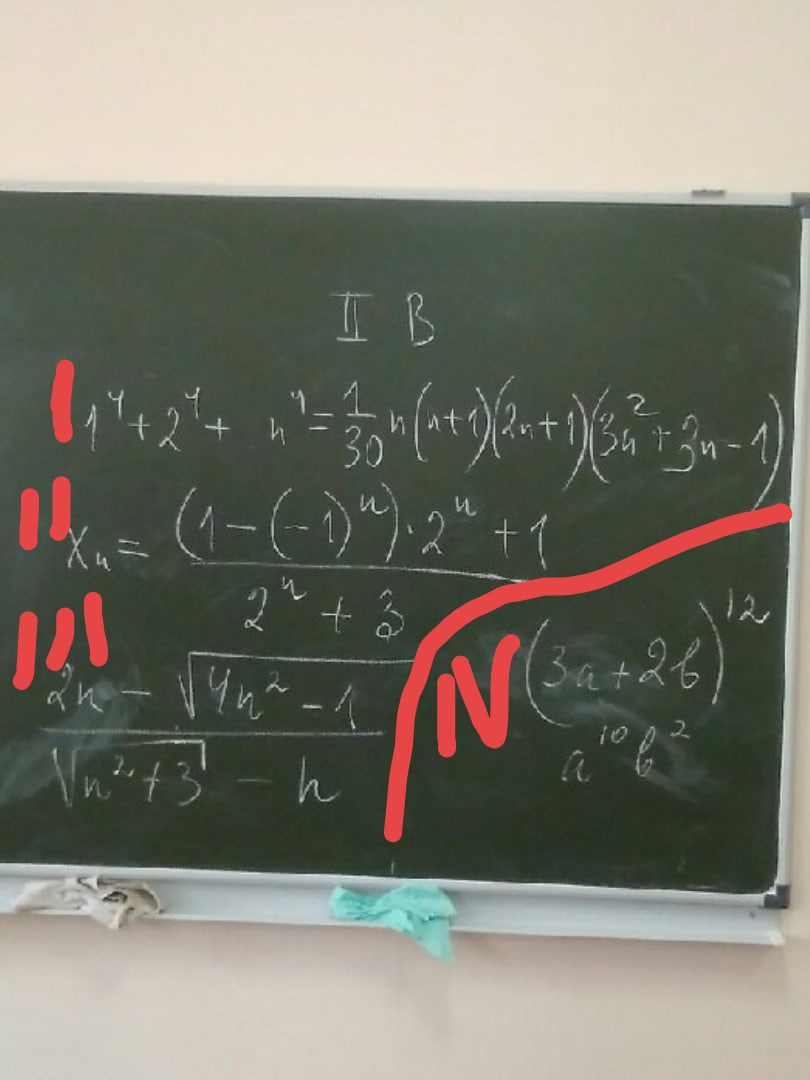 II B
I 1⁴+2⁴+ n⁴=1/30 n(n+1)(2n+1)(3n²+3n-1)
II xₙ= ((1-(-1)ⁿ)·2ⁿ+1)/(2ⁿ+3)
III (2n-√(4n²-1))/(√(n²+3)-n)
IV (3a+2b)¹²
a¹⁰b²